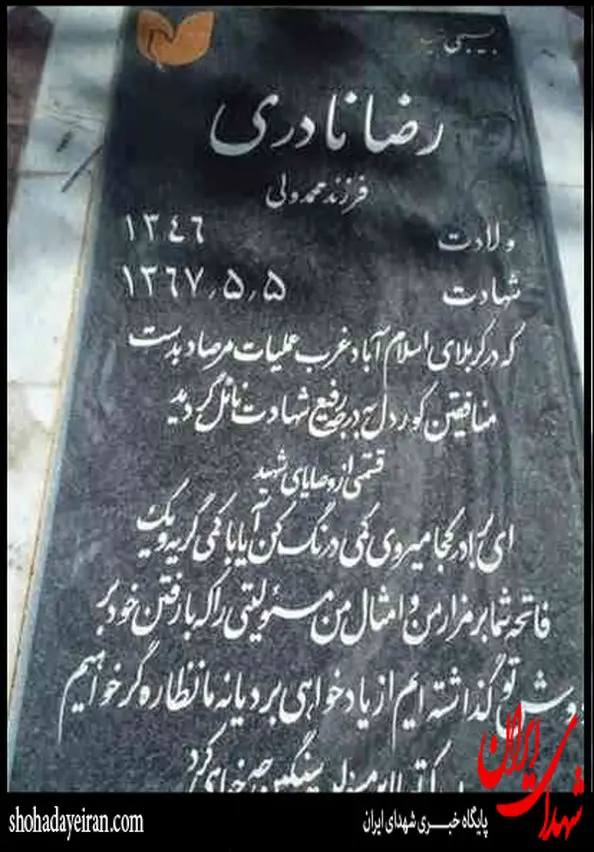 بسیجی شهید
رضا نادری
فرزند محمد ولی
ولادت ۱۳٤٦
شهادت ۱۳٦۷٫۵٫۵
که در کربلای اسلام آباد غرب عملیات مرصاد بدست
منافقین کوردل به درجه رفیع شهادت نائل گردید
قسمتی از وصایای شهید
ای برادر کجا میروی کمی درنگ کن آیا با کمی گریه و یک
فاتحه شما بر مزار من و امثال من مسئولیتی را که با رفتن خود بر
دوش تو گذاشته ایم از یاد خواهی برد یا نه ما نظاره گر خواهیم
که تو با این مسئولیت سنگین چه خواهی کرد
شهدای ایران
پایگاه خبری شهدای ایران
shohadayeiran.com